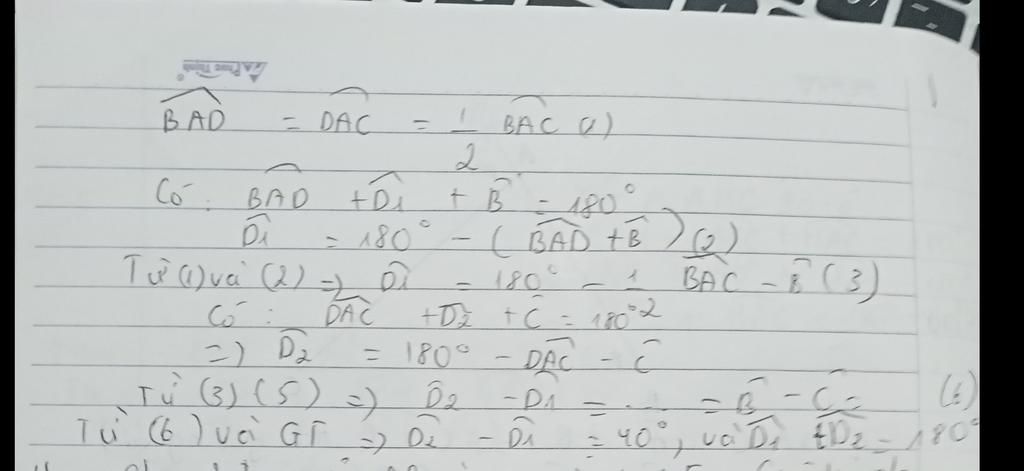 Phúc Thịnh
BAD = DAC = 1/2 BAC (1)
Có : BAD + D1 + B = 180°
D1 = 180° - ( BAD + B ) (2)
Từ (1) và (2) => D1 = 180° - 1/2 BAC - B (3)
Có : DAC + D2 + C = 180°
=) D2 = 180° - DAC - C
Từ (3) (5) => D2 - D1 = ... = B - C = (6)
Từ (6) và GT => D2 - D1 = 40°, và D1 + D2 = 180°